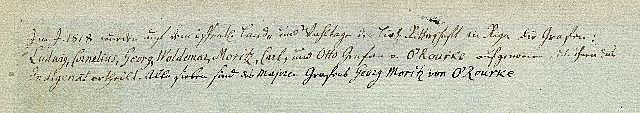 Im J. 1818 wurden auf dem öffentl. Landtage der Livl. Ritterschaft in Riga die Grafen:
Ludwig, Cornelius, Georg, Woldemar, Moritz, Carl, und Otto Grafen v. O'Rourke aufgenommen, d. i. ihnen das
Indigenat ertheilt. Alle sieben sind des Majoren Grafens Georg Moritz von O'Rourke